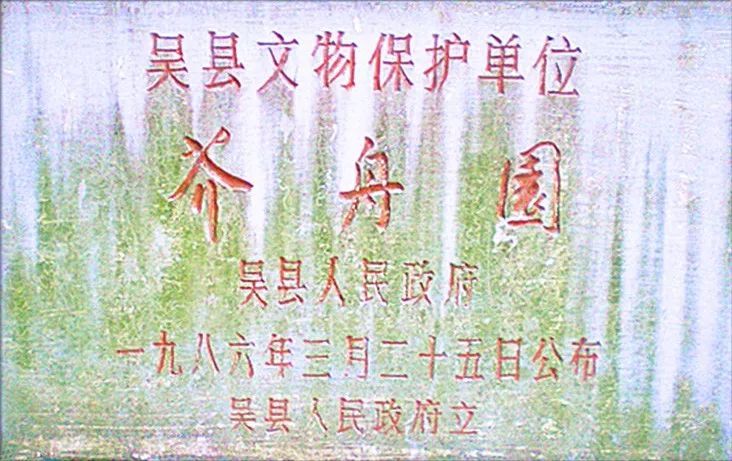 吴县文物保护单位
芥舟园
吴县人民政府
一九八六年三月二十五日公布
吴县人民政府立